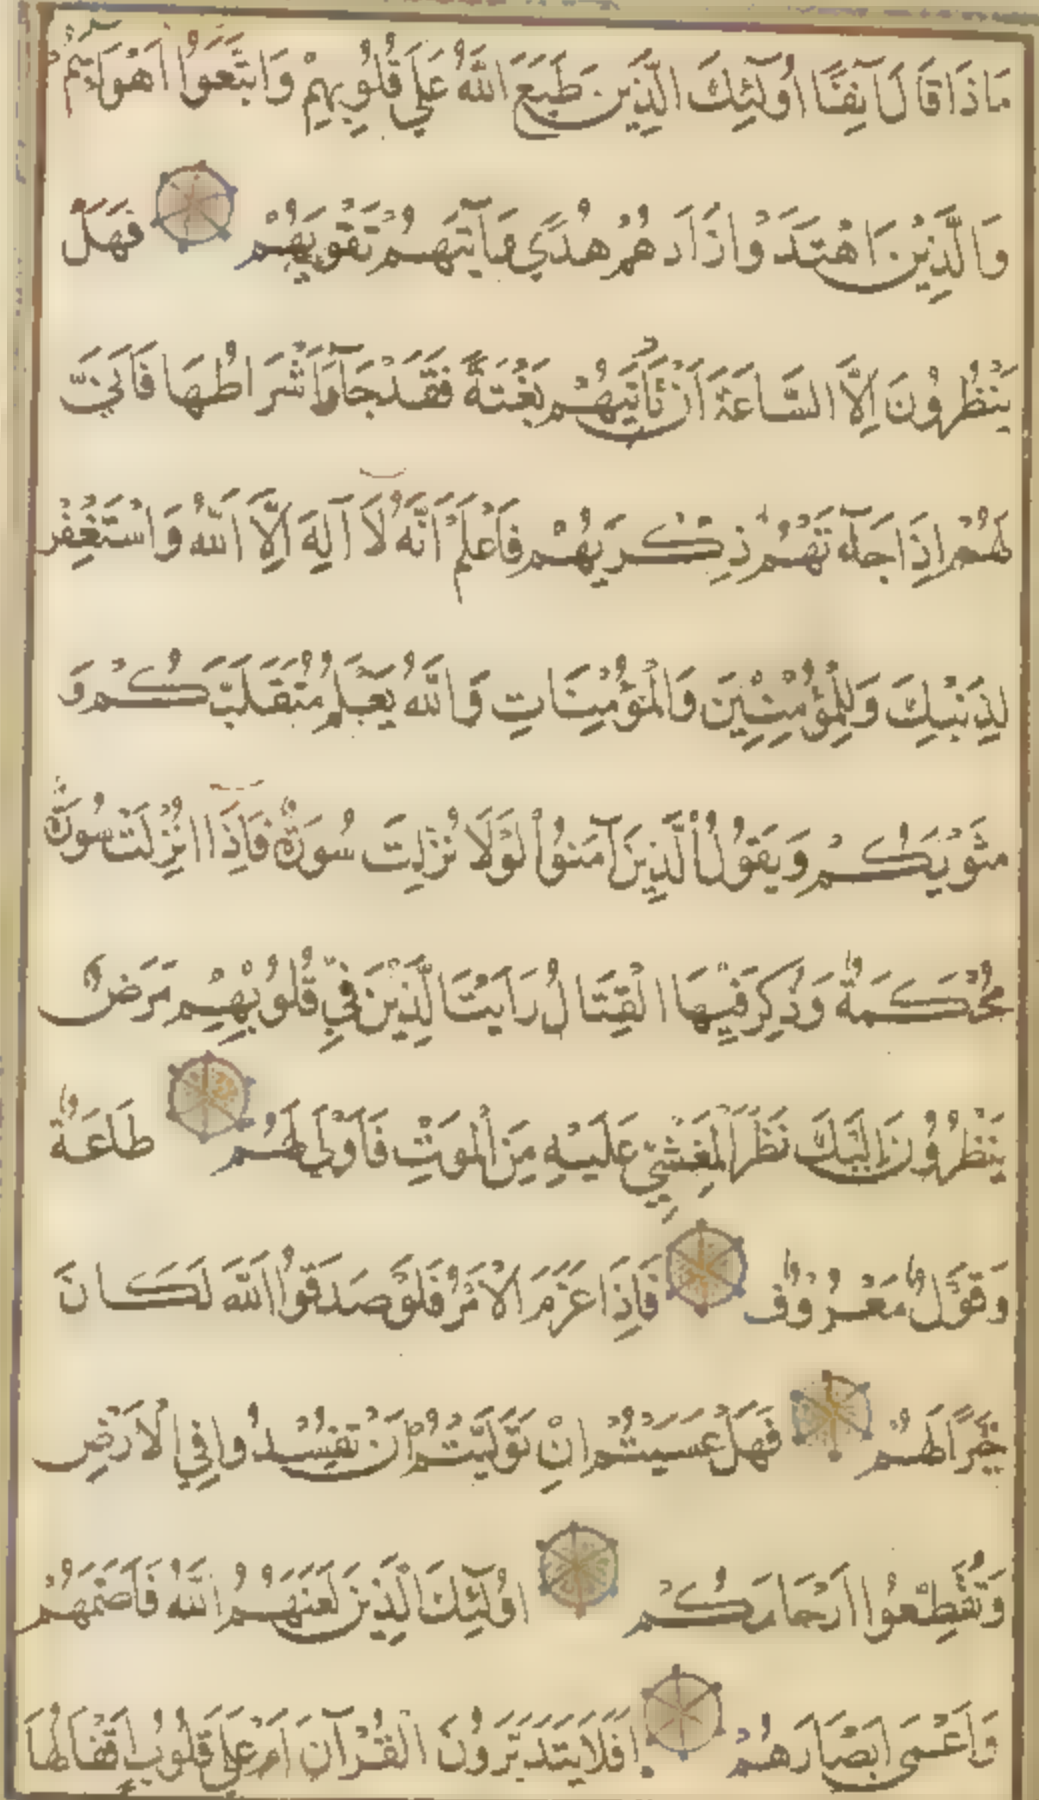 مَاذَا قَالَ آنِفًا اُولَٓئِكَ الَّذِينَ طَبَعَ اللَّهُ عَلَى قُلُوبِهِمْ وَاتَّبَعَوُا اَهْوَاءَهُمْ
وَالَّذِينَ اهْتَدَوْا زَادَهُمْ هُدًي وَآتَيهُمْ تَقْوَيهُمْ فَهَلْ
يَنْظُرُونَ اِلَّا السَّاعَةَ اَنْ تَأتِيَهُمْ بَغْتَةً فَقَدْ جَآءَ اَشْرَاطُهَا فَاَنّيَ
لَهُمْ اِذَا جَآءَتْهُمْ ذِكْرَيهُمْ فَاعْلَمْ اَنَّهُ لَا اِلَهَ اِلَّا اللَّهُ وَاسْتَغْفِرْ
لِذَنْبِكَ وَلِلْمُؤْمِنِينَ وَالْمُؤْمِنَاتِ وَاللَّهُ يَعْلَمُ مُتَقَلَّبَكُمْ وَ
مَثْوَيكُمْ وَيَقُولُ الَّذِينَ آمَنُوا لَوْلَا نُزِّلَتْ سُورَةٌ فَاِذَا اُنْزِلَتْ سُورَةٌ
مُحْكَمَةٌ وَذُكِرَ فِيهَا الْقِتَالُ رَاَيْتَ الَّذِينَ فِي قُلُوبِهِمْ مَرَضٌ
يَنْظُرُونَ اِلَيْكَ نَظَرَ الْمَغْشِيِّ عَلَيْهِ مِنَ الْمَوْتِ فَاَوْلَي لَهُمْ طَاعَةٌ
وَقَوْلٌ مَعْرُوفٌ فَاِذَا عَزَمَ الْاَمْرُ فَلَوْ صَدَقُوا اللَّهَ لَكَانَ
خَيْرًا لَهُمْ فَهَلْ عَسَيْتُمْ اِنْ تَوَلَّيْتُمْ اَنْ تُفْسِدُوا فِي الْاَرْضِ
وَتُقَطِّعُوا اَرْحَامَكُمْ اُولَٓئِكَ الَّذِينَ لَعَنَهُمُ اللَّهُ فَاَصَمَّهُمْ
وَاَعْمَى اَبْصَارَهُمْ اَفَلَا يَتَدَبَّرُونَ الْقُرْآنَ اَمْ عَلَى قُلُوبٍ اَقْفَالُهَا